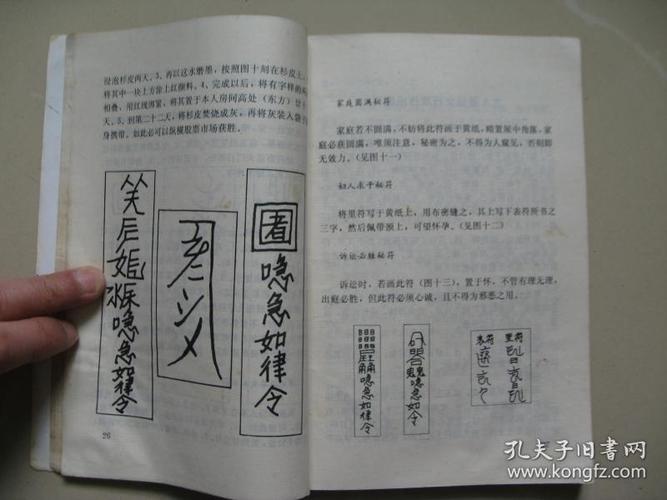 浸泡杉皮两天。3、再以这水磨墨,按照图十刻在杉皮上,
将其中一块上方涂上红颜料。4、完成以后,将有字样的
相叠,用红线绑紧,将其置于本人房间高处(东方)廿
天。5、到第二十二天,将杉皮焚烧成灰,再将灰装入袋
身携带。如此必可以纵横股票市场获胜。
唸急如律令
唸急如律令
26
家庭圆满秘符
家庭若不圆满,不妨将此符画于黄纸,暗置屋中角落,家
庭必获圆满,唯须注意,秘密为之,不得为人窥见,否则即
无效力。(见图十一)
妇人求子秘符
将里符写于黄纸上,用布密缝之,其上写下表符所书之
三字,然后佩带颈上,可望怀孕。(见图十二)
诉讼必胜秘符
诉讼时,若画此符(图十三),置于怀,不管有理无理,
出庭必胜,但此符必须心诚,且不得为邪恶之用。
唸急如律令
唸急如令
表符
里符
孔夫子旧书网
www.kongfz.com